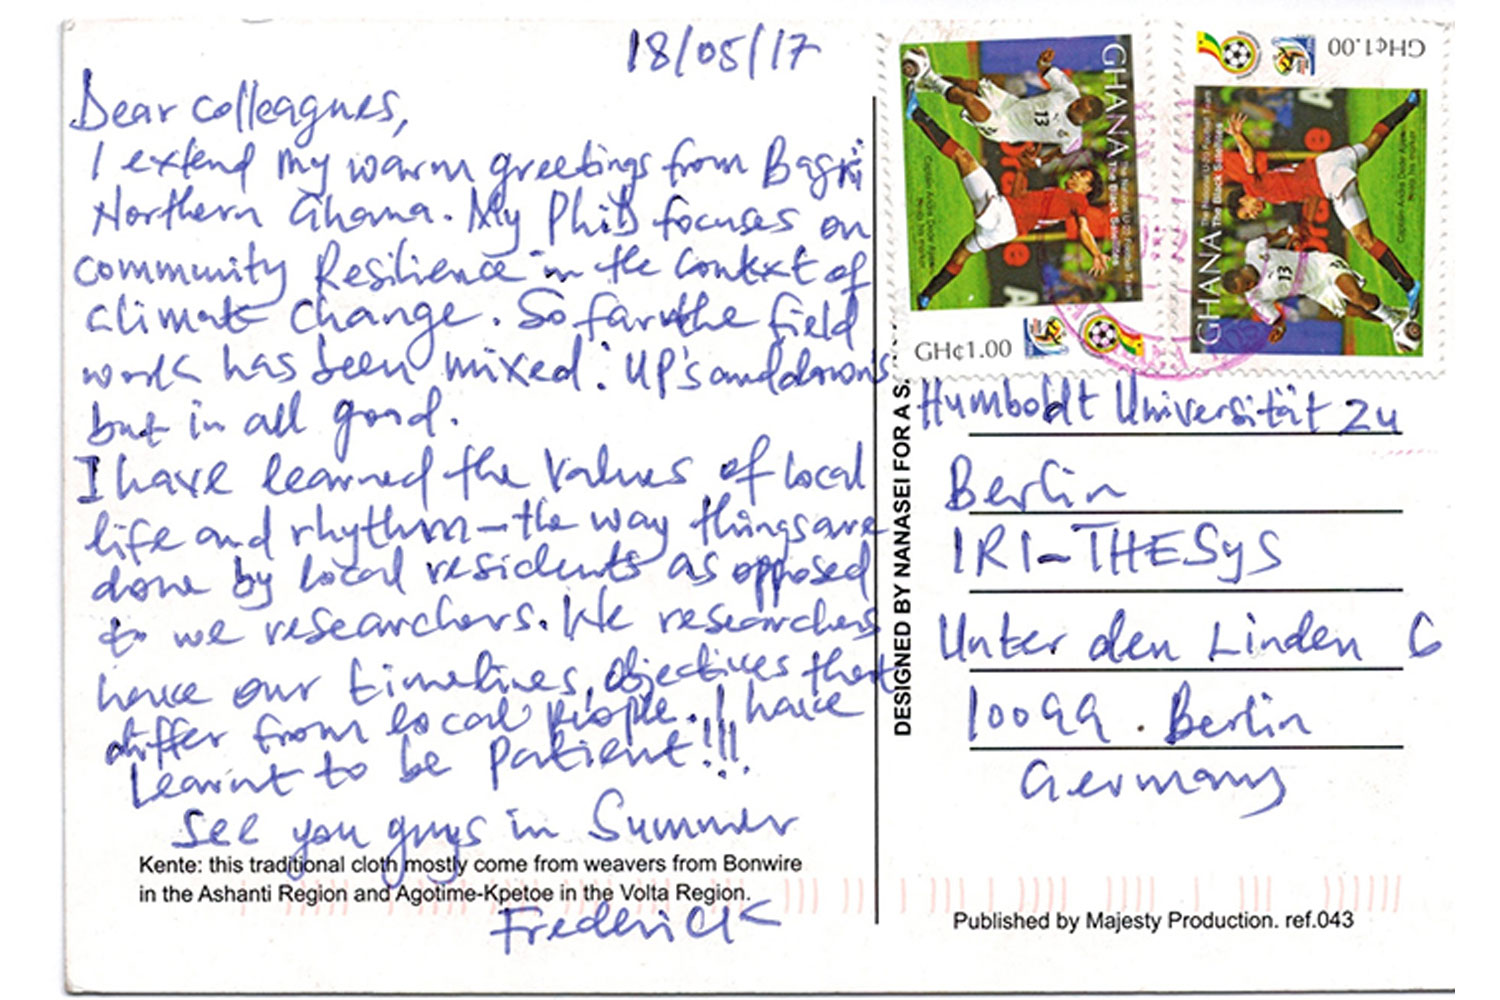 18/05/17
Dear colleagues,
I extend my warm greetings from
Northern Ghana. My PhD focuses on
community Resilience in the context of
climate change. So far the field
work has been mixed: UP's and down's
but in all good.
I have learned the values of local
life and rhythm – the way things are
done by local residents as opposed
to we researchers. We researchers
have our timelines, objectives that
differ from local people. I have
Learnt to be patient!!!
See you guys in Summer
Kente: this traditional cloth mostly come from weavers from Bonwire
in the Ashanti Region and Agotime-Kpetoe in the Volta Region.
Frederick
DESIGNED BY NANASEI FOR A S.
GHANA
The Black Satellites
GH¢1.00
13
GHANA
The Black Satellites
GH¢1.00
13
Humboldt Universität zu
Berlin
IRI-THESys
Unter den Linden 6
10099. Berlin
Germany
Published by Majesty Production. ref.043